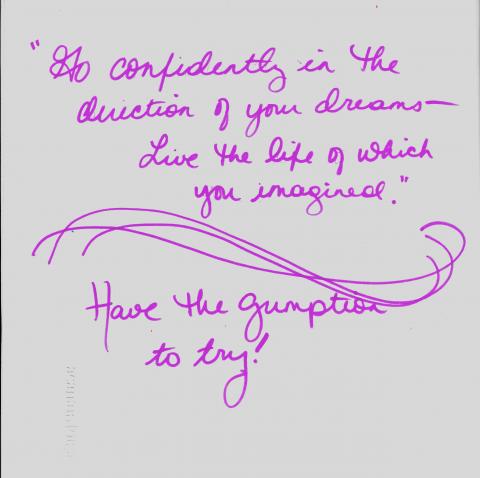 "Go confidently in the
direction of your dreams—
Live the life of which
you imagined."
Have the gumption
to try!